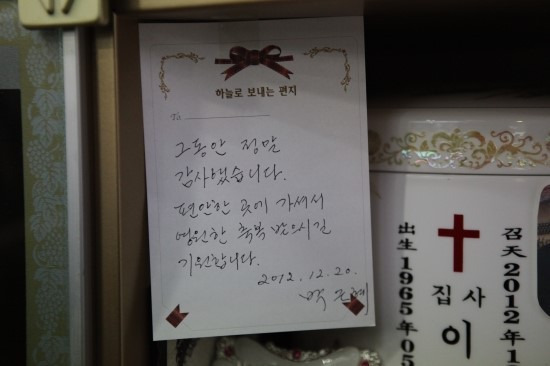 하늘로 보내는 편지
To.
그동안 정말
감사했습니다.
편안한 곳에 가셔서
영원한 축복 받으시길
기원합니다.
2012.12.20.
박근혜
召天2012年1
집사
이
出生1965年05